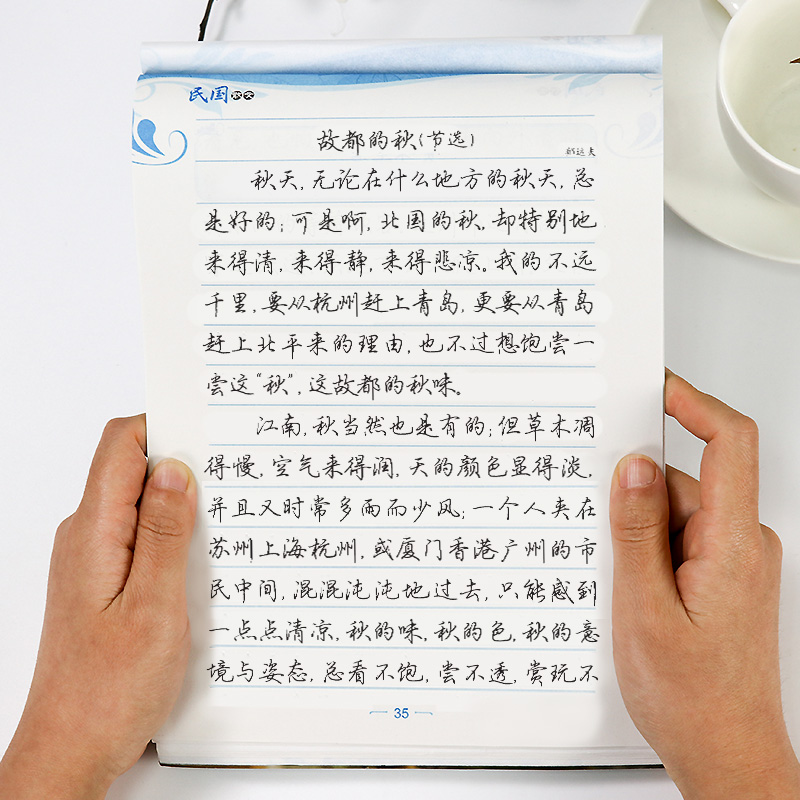 民国散文
故都的秋(节选)
郁达夫
秋天,无论在什么地方的秋天,总
是好的;可是啊,北国的秋。却特别地
来得清,来得静,来得悲凉。我的不远
千里,要从杭州赶上青岛,更要从青岛
赶上北平来的理由,也不过想饱尝一
尝这“秋”,这故都的秋味。
江南,秋当然也是有的;但草木凋
得慢,空气来得润,天的颜色显得淡,
并且又时常多雨而少风;一个人夹在
苏州上海杭州,或厦门香港广州的市
民中间,混混沌沌地过去,只能感到
一点点清凉,秋的味,秋的色,秋的意
境与姿态,总看不饱,尝不透,赏玩不
35